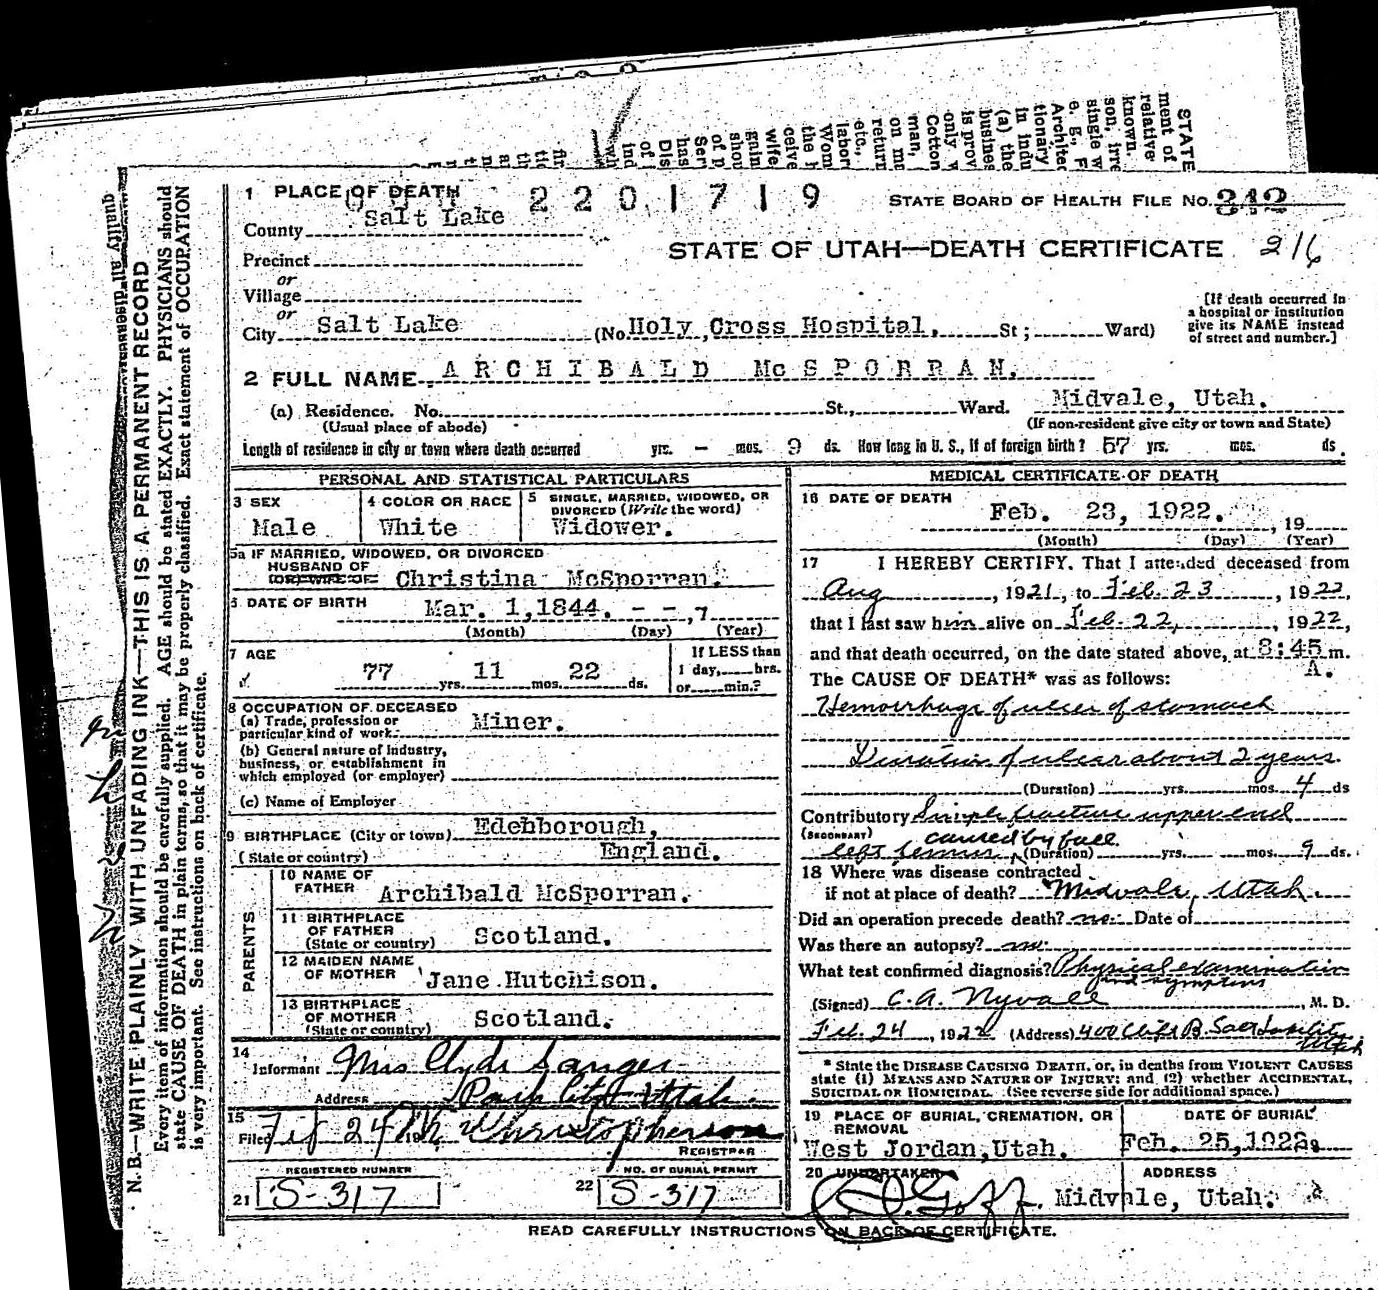 STATE
ment of
relative
known.
son, irre
single w
e. g., F
Architec
tionary
in indu
(a) the
busines
is prov
only w
Cotton
man,
return
on me
etc.,
labor
Wom
the h
ceive
wife,
gain
shou
of p
Ser
has
Dis
of
ind
N. B.—WRITE PLAINLY WITH UNFADING INK—THIS IS A PERMANENT RECORD
Every item of information should be carefully supplied. AGE should be stated EXACTLY. PHYSICIANS should
state CAUSE OF DEATH in plain terms, so that it may be properly classified. Exact statement of OCCUPATION
is very important. See instructions on back of certificate.
1 PLACE OF DEATH 2201719 STATE BOARD OF HEALTH FILE NO. 342
County Salt Lake
STATE OF UTAH—DEATH CERTIFICATE 216
Precinct
or
Village
or
City Salt Lake (No. Holy Cross Hospital, St; Ward)
[If death occurred in
a hospital or institution
give its NAME instead
of street and number.]
2 FULL NAME ARCHIBALD McSPORRAN.
(a) Residence. No. St., Ward. Midvale, Utah.
(Usual place of abode) (If non-resident give city or town and State)
Length of residence in city or town where death occurred yrs. — mos. 9 ds. How long in U. S., if of foreign birth? 57 yrs. mos. ds.
PERSONAL AND STATISTICAL PARTICULARS
3 SEX 4 COLOR OR RACE 5 SINGLE, MARRIED, WIDOWED, OR
DIVORCED (Write the word)
Male White Widower.
5a IF MARRIED, WIDOWED, OR DIVORCED
HUSBAND OF
(OR) WIFE OF Christina McSporran.
6 DATE OF BIRTH Mar. 1,1844. - -,7
(Month) (Day) (Year)
7 AGE If LESS than
77 yrs. 11 mos. 22 ds. 1 day, hrs.
or min.?
8 OCCUPATION OF DECEASED
(a) Trade, profession or
particular kind of work Miner.
(b) General nature of industry,
business, or establishment in
which employed (or employer)
(c) Name of Employer
9 BIRTHPLACE (City or town) Edenborough,
(State or country) England.
PARENTS
10 NAME OF
FATHER Archibald McSporran.
11 BIRTHPLACE
OF FATHER
(State or country) Scotland.
12 MAIDEN NAME
OF MOTHER Jane Hutchison.
13 BIRTHPLACE
OF MOTHER
(State or country) Scotland.
14
Informant Mrs Clyde Sanger
Address Park City Utah.
15
Filed Feb 24 Christopherson
REGISTRAR
REGISTERED NUMBER NO. OF BURIAL PERMIT
21 S-317 22 S-317
MEDICAL CERTIFICATE OF DEATH
16 DATE OF DEATH
Feb. 23, 1922. , 19
(Month) (Day) (Year)
17 I HEREBY CERTIFY, That I attended deceased from
Aug , 1921, to Feb. 23 , 1922,
that I last saw him alive on Feb. 22, 1922,
and that death occurred, on the date stated above, at 8:45 m.
A.
The CAUSE OF DEATH* was as follows:
Hemorrhage of ulcer of stomach
Duration of ulcer about 2 years.
(Duration) yrs. mos. 4 ds
Contributory Simple fracture upper end
(SECONDARY) caused by fall.
left femur, (Duration) yrs. mos. 9 ds.
18 Where was disease contracted
if not at place of death? Midvale, Utah.
Did an operation precede death? no. Date of
Was there an autopsy? no.
What test confirmed diagnosis? Physical examination
and symptoms
(Signed) C. A. Nyvall , M. D.
Feb. 24 , 1922 (Address) 400 Clift B. Salt Lake City
Utah
* State the DISEASE CAUSING DEATH, or, in deaths from VIOLENT CAUSES
state (1) MEANS AND NATURE OF INJURY; and (2) whether ACCIDENTAL,
SUICIDAL OR HOMICIDAL. (See reverse side for additional space.)
19 PLACE OF BURIAL, CREMATION, OR
REMOVAL DATE OF BURIAL
West Jordan,Utah. Feb. 25,1922.
20 UNDERTAKER ADDRESS
Goff. Midvale, Utah.
READ CAREFULLY INSTRUCTIONS ON BACK OF CERTIFICATE.